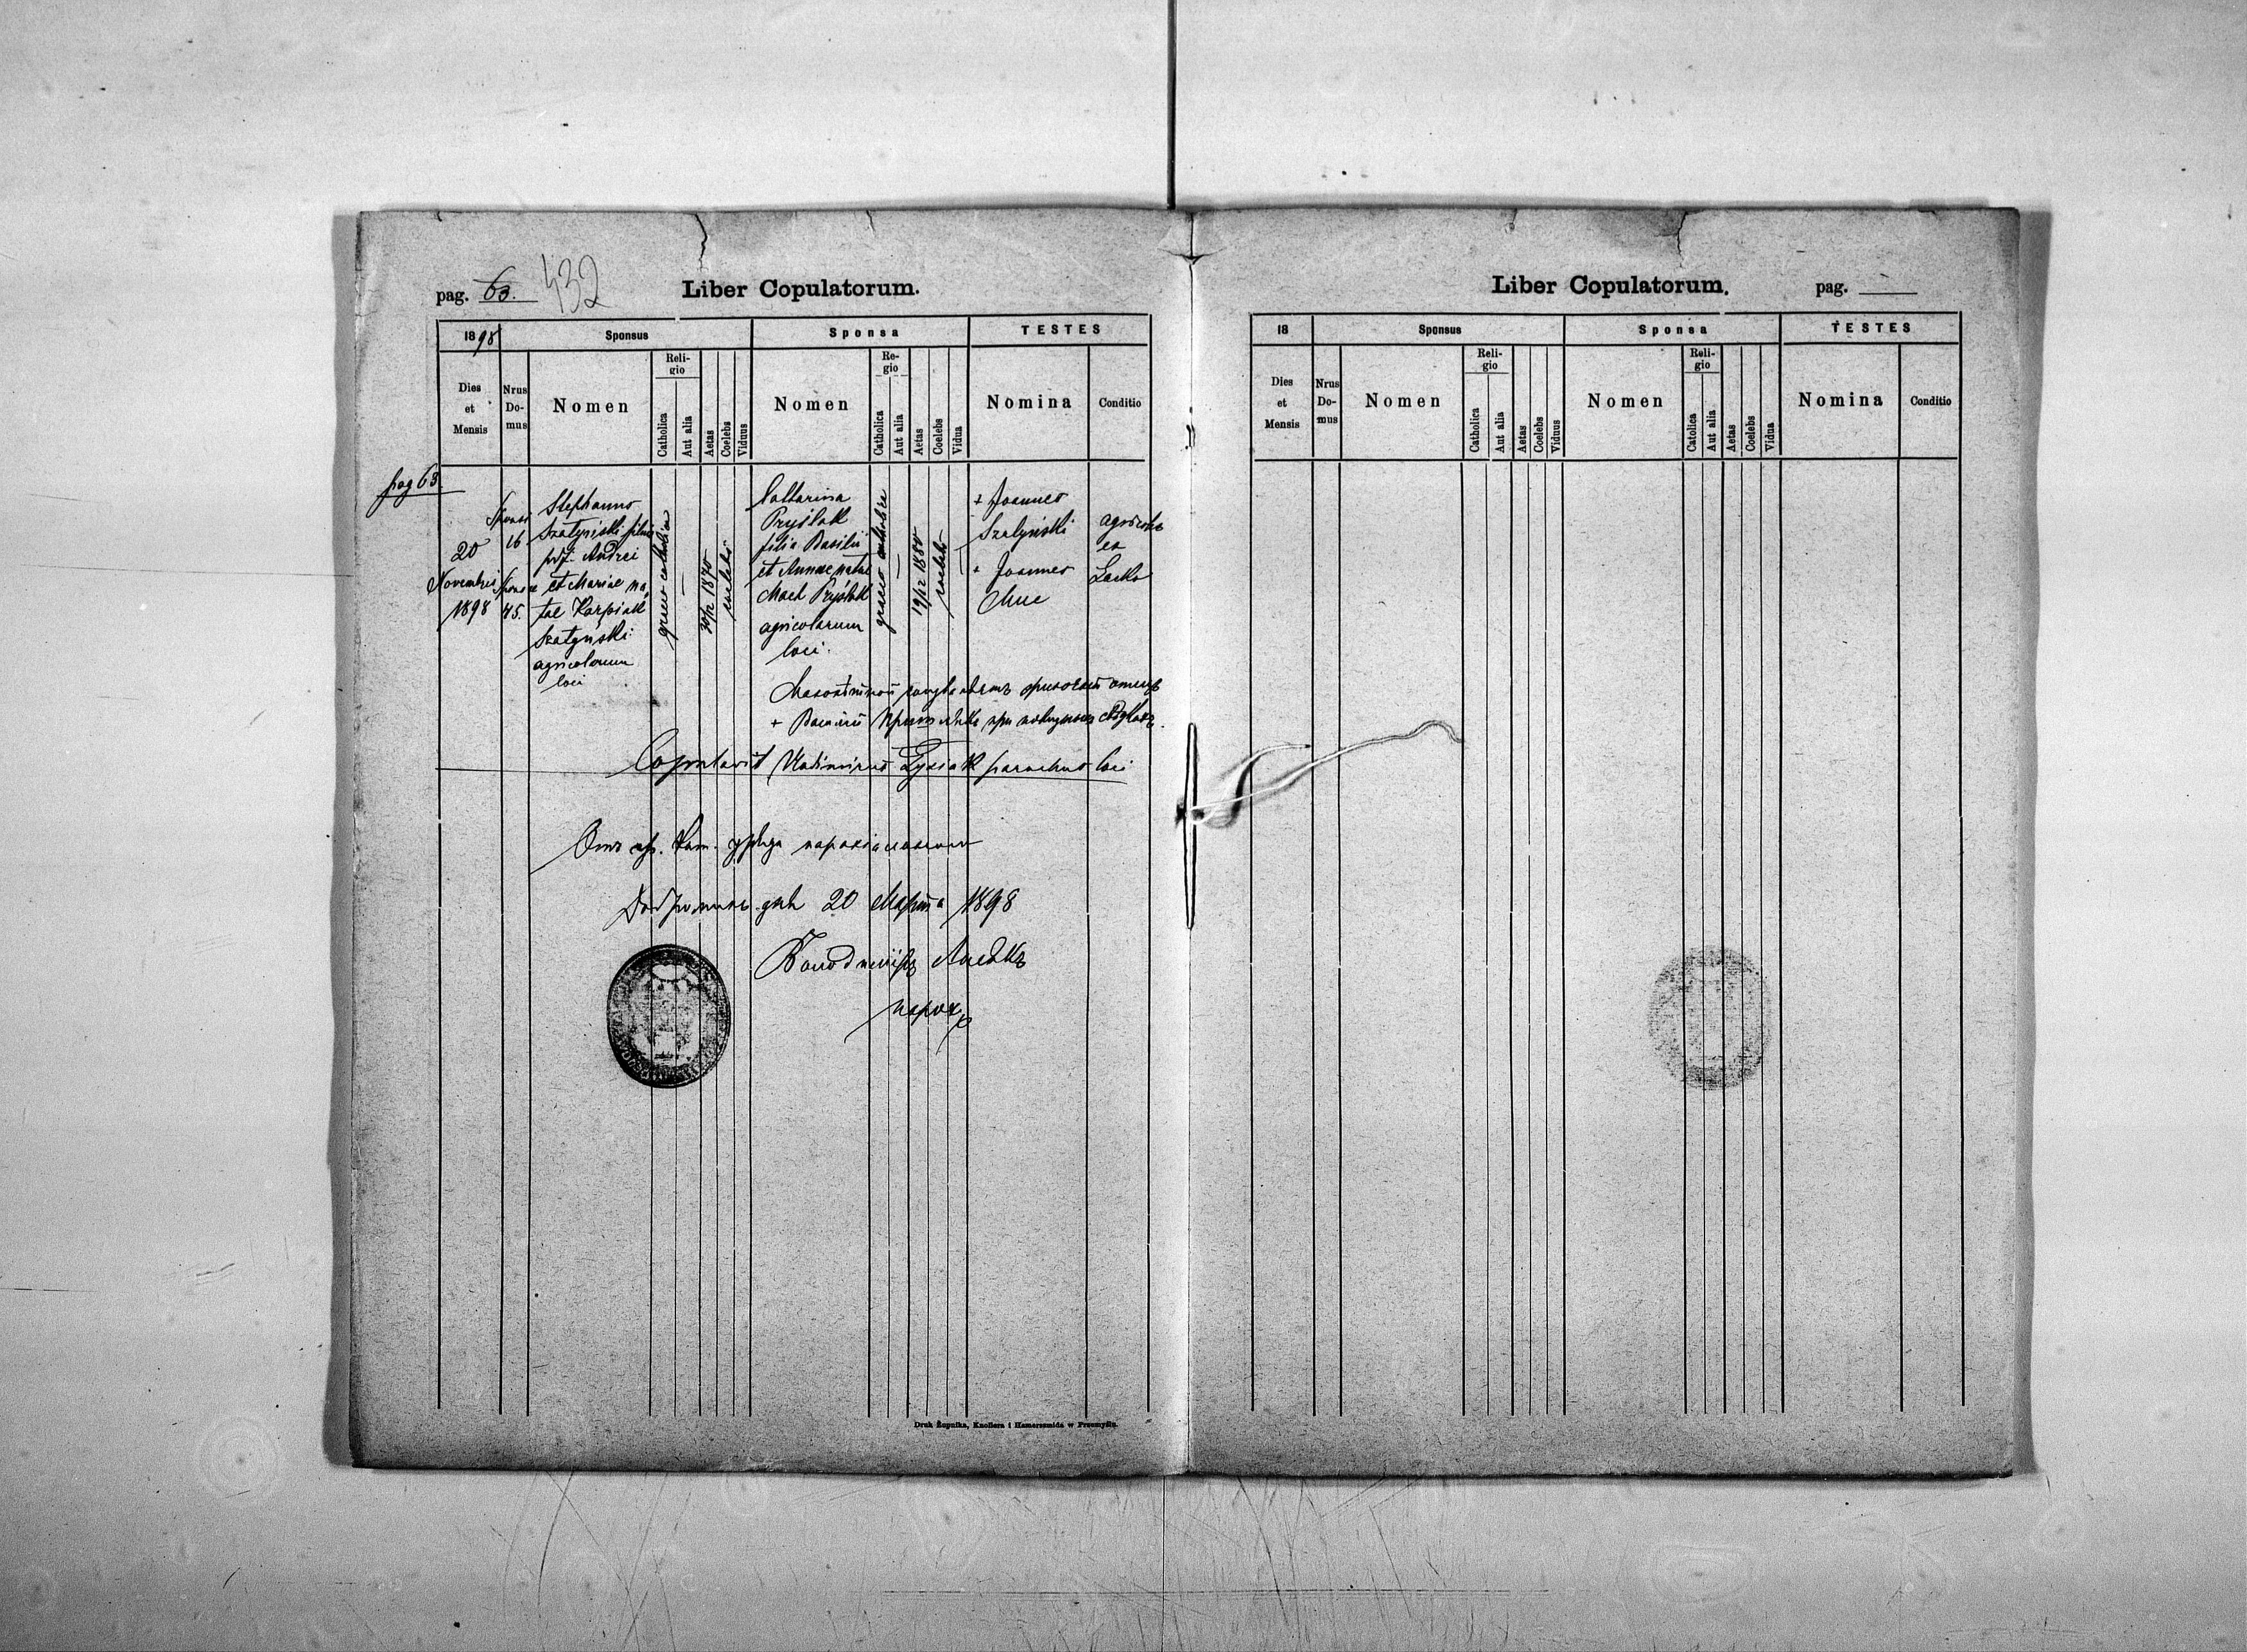 pag. 63. 432
Liber Copulatorum.
1898 Sponsus Sponsa TESTES
Dies et Mensis
Nrus Do- mus
Nomen
Reli- gio
Catholica
Aut alia
Aetas
Coelebs
Viduus
Nomen
Re- gio
Catholica
Aut alia
Aetas
Coelebs
Vidua
Nomina
Conditio
pag 63.
20
Novembris
1898
Sponsi
16
Sponsae
45.
Stephanus
Szałyński filius
Andrei
et Mariae na-
tae Karpiak
Szałyński
agricolarum
loci
graeco catholica
30/12 1870
coelebs
Catharina
Pryślak
filia Basilii
et Annae natae
Mach Pryślak
agricolarum
loci.
graeco catholica
19/12 1880
coelebs
+ Joannes
Szałyński
+ Joannes
Muc
agricolae
ex
Lacko
+ Василий при
Copulavit Vladimirus Łysiak parochus loci
Отъ гр. кат. уряда парохіального
дня 20 Марта 1898
Володимиръ Лысякъ
парох
Druk Żupnika, Knollera i Hamerszmida w Przemyślu.
Liber Copulatorum.
pag.
18 Sponsus Sponsa TESTES
Dies et Mensis
Nrus Do- mus
Nomen
Reli- gio
Catholica
Aut alia
Aetas
Coelebs
Viduus
Nomen
Reli- gio
Catolica
Aut alia
Aetas
Coelebs
Vidua
Nomina
Conditio